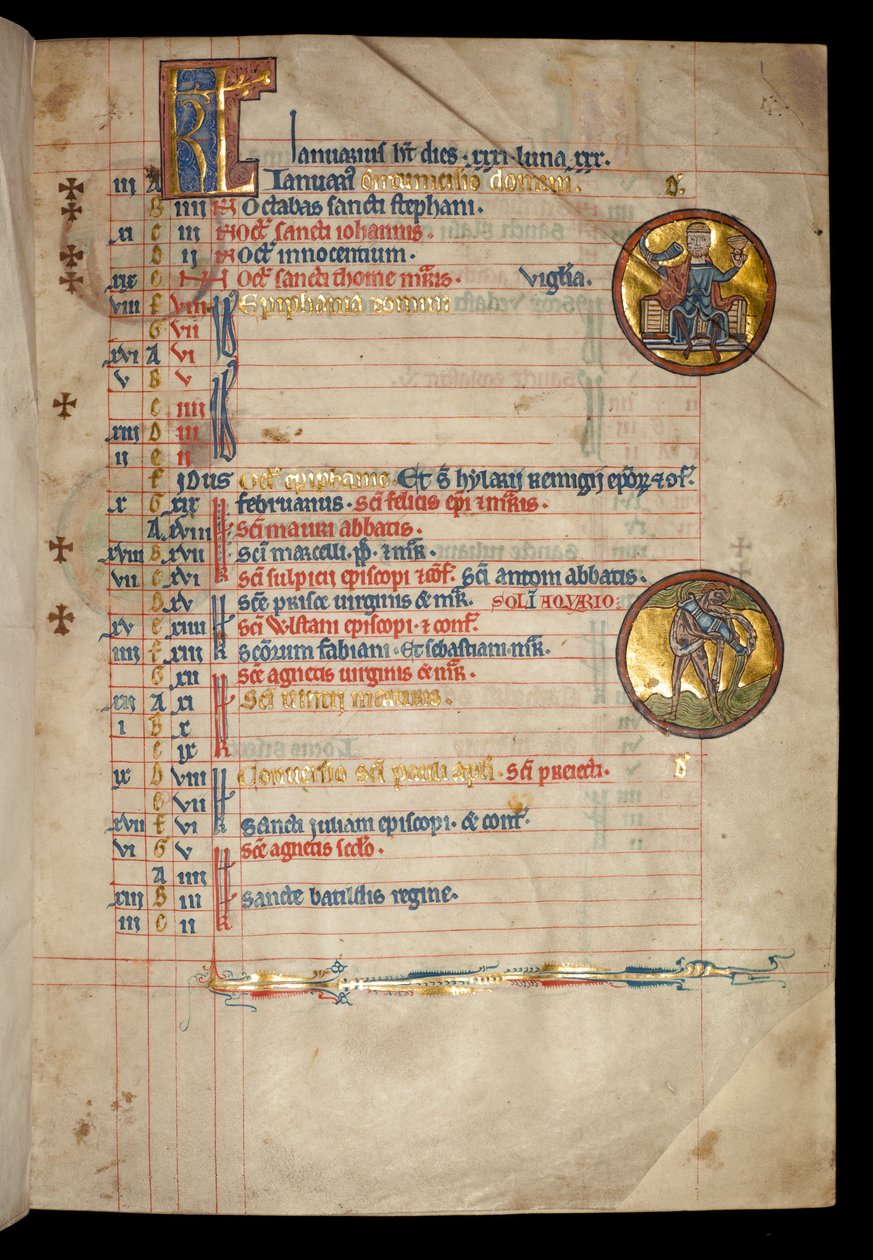 KL Januarius ht dies .xxxi. luna .xxx.
iii A Januarii Circumcisio domini. D.
B iiii N Octabas sancti stephani.
xi C iii N Oct sancti iohannis.
D ii N Oct innocentium.
xix E N Oct sancti thome mris. Vigilia.
viii F viii Epiphania domini
G vii
xvi A vi
v B v
C iiii
xiii D iii
ii E ii
F idus Oct epiphanie. Et s hylarii Remigii epor et of.
x G xix februarius. Sci felicis epi et mris.
A xviii Sci mauri abbatis.
xviii B xvii Sci marcelli. pp. et mr.
vii C xvi Sci sulpicii episcopi et cof. Sci antoni abbatis.
D xv Sce prisce virginis et mr. SOL I AQVARIO
xv E xiiii Sci Wlstani episcopi. et conf.
iiii F xiii Scorum fabiani. Et sebastiani mr.
G xii Sce agnetis uirginis et mr.
xii A xi Sci vincencii martiris.
i B x
C ix
ix D viii Conuersio sci pauli apli. Sci preiecti. D
E vii
xvii F vi Sancti juliani episcopi. et conf.
vi G v Sce agnetis secdo.
A iiii
xiiii B iii Sancte batildis regine.
iii C ii